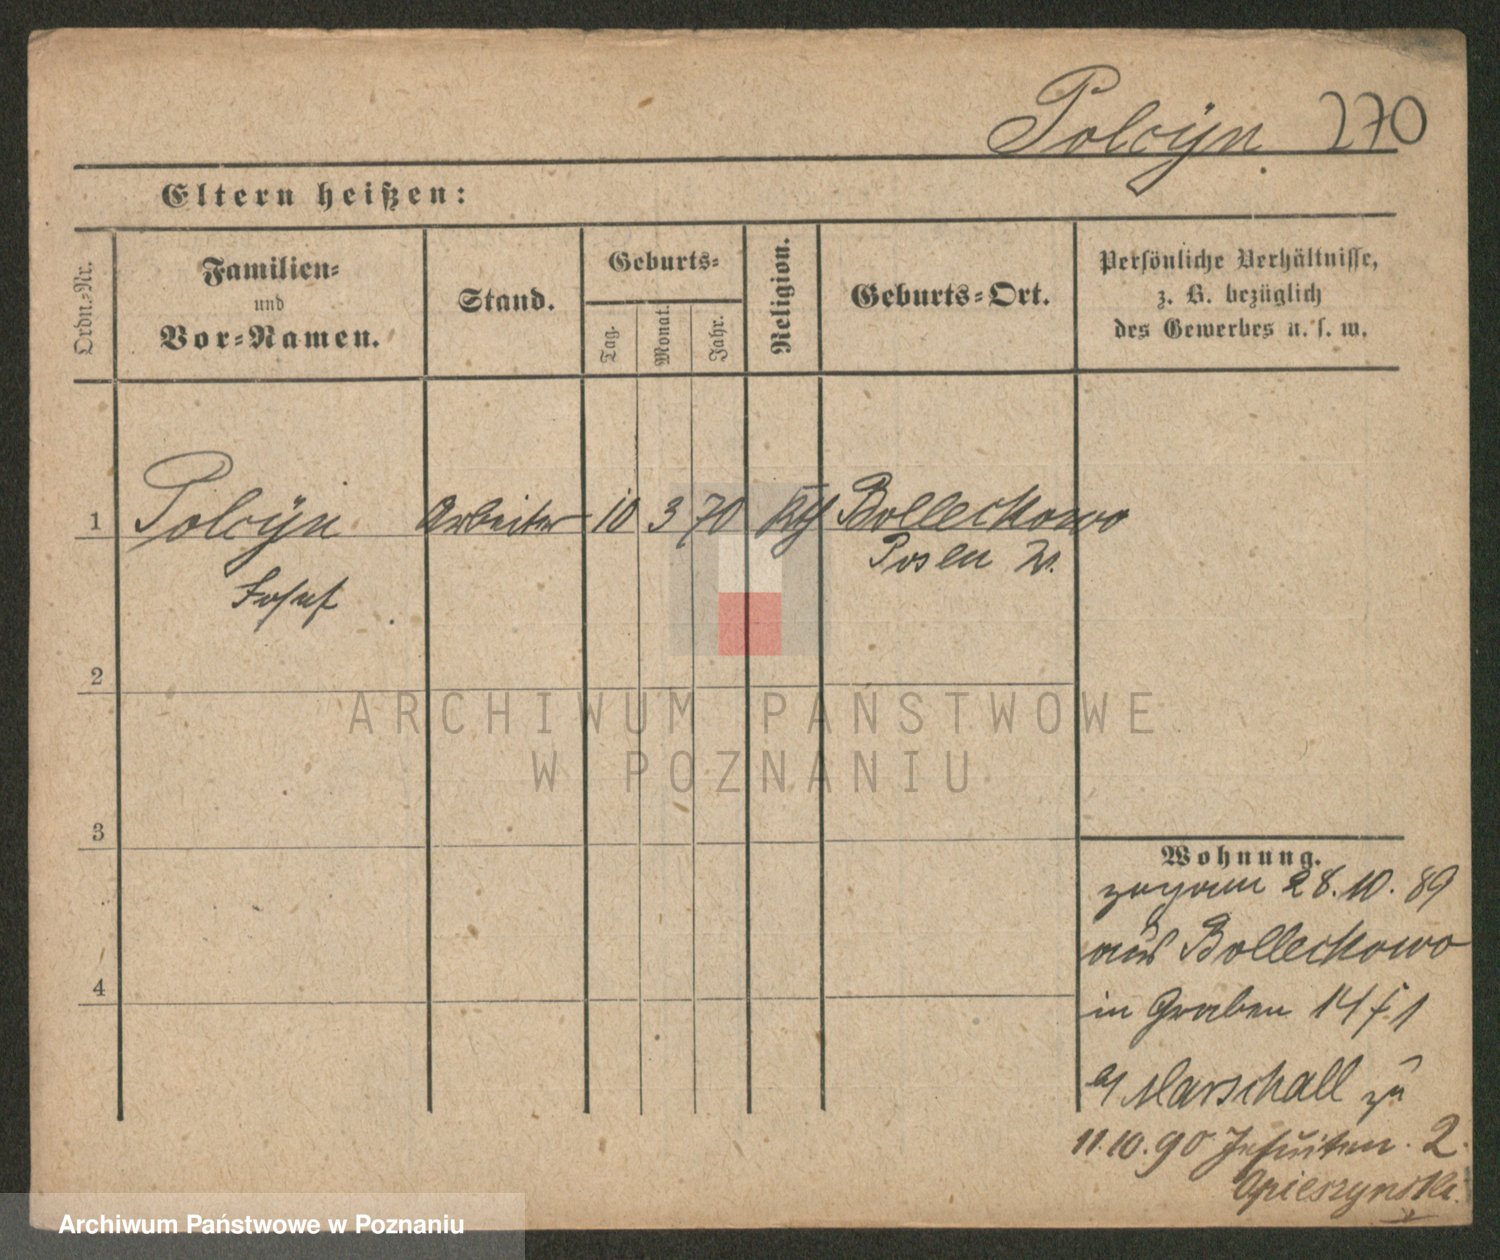 Polcÿn 270
Eltern heißen:
Ordn.-Nr.
Familien-
und
Vor-Namen.
Stand.
Geburts-
Tag.
Monat.
Jahr.
Religion.
Geburts-Ort.
Persönliche Verhältnisse,
z. B. bezüglich
des Gewerbes u. s. w.
1 Polcÿn Arbeiter 10 3 70 kth Bolleckowo
Josef Posen W.
2
ARCHIWUM PAŃSTWOWE
W POZNANIU
3
Wohnung.
28.10.89
aus Bolleckowo
in Graben 14
Marschall zu
4
11.10.90 Jesuiten. 2
Archiwum Państwowe w Poznaniu